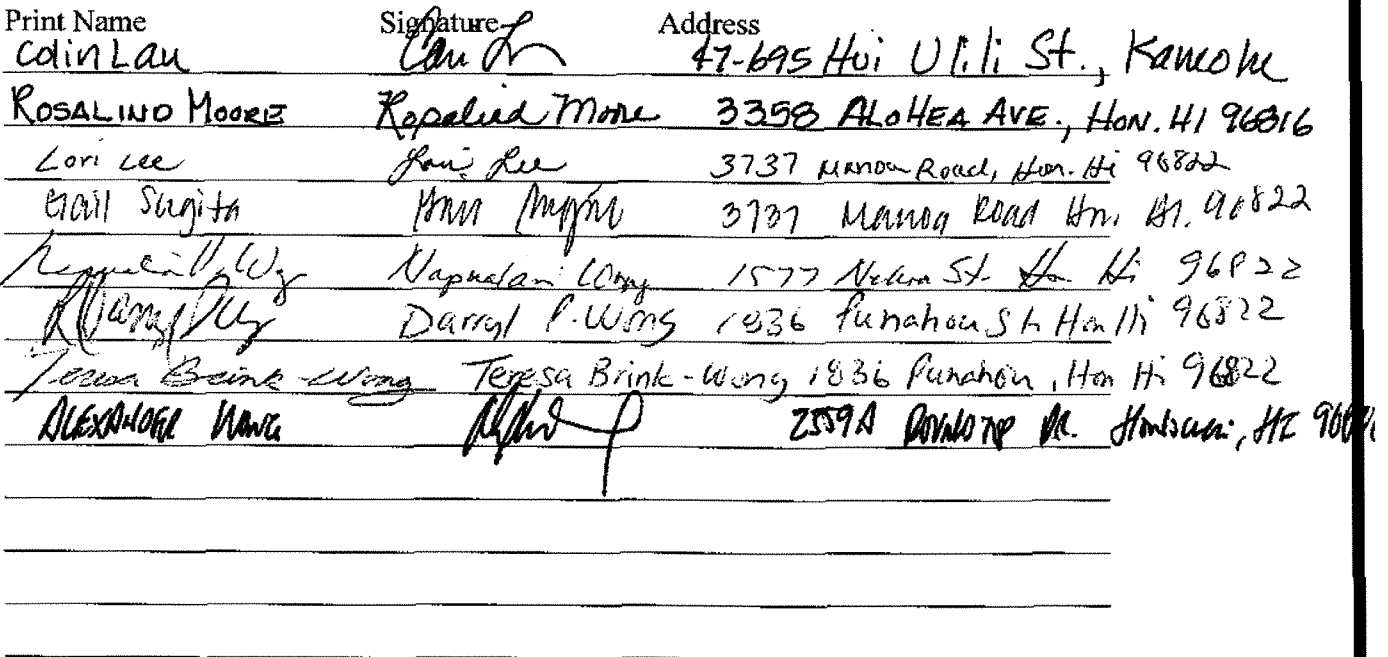 Print Name Signature Address
Colin Lau 47-695 Hui Ulili St., Kaneohe
ROSALIND MOORE Rosalind Moore 3358 ALOHEA AVE., HON. HI 96816
Lori Lee Lori Lee 3737 Manoa Road, Hon. Hi 96822
Gail Sugita 3737 Manoa Road Hon. HI. 96822
Napualani Wong 1577 St. Hon Hi 96822
Darryl P. Wong 1836 Punahou St Hon Hi 96822
Teresa Brink-Wong Teresa Brink-Wong 1836 Punahou, Hon Hi 96822
ALEXANDER 2559A DR. Honolulu, HI